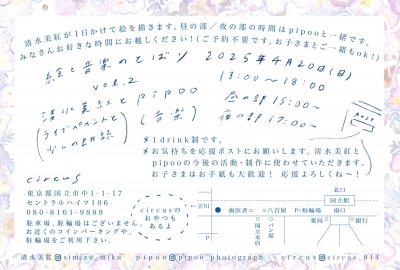 清水美紅が1日かけて絵を描きます。昼の部／夜の部の時間はpipooと一緒です。
みなさんお好きな時間にお越しください！(ご予約不要です。お子さまとご一緒もok!)
絵と音楽のとばり
vol.2
清水美紅とpipoo
(ライブペイントと少しの物語)
(音楽)
2025年4月20日(日)
13:00〜18:00
昼の部 15:00〜
夜の部 17:00〜
post
＊1drink制です。
＊お気持ちを応援ポストにお願いします。清水美紅と
pipooの今後の活動・制作に使わせていただきます。
お子さまはお手紙も大歓迎！ 応援よろしくね〜！
circus
東京都国立市中1-1-17
セントラルハイツ106
080-8161-9889
駐車場、駐輪場はございません。
お近くのコインパーキングや、
駐輪場をご利用下さい。
circusの
おやつも
あるよ
←立川
北口
国立駅
南口
P
歯医者
八百屋
P
駐輪場
パン屋
国立本店
薬局
銀行
清水美紅 simizu_miku pipoo pipoo_photograph circus circus_914